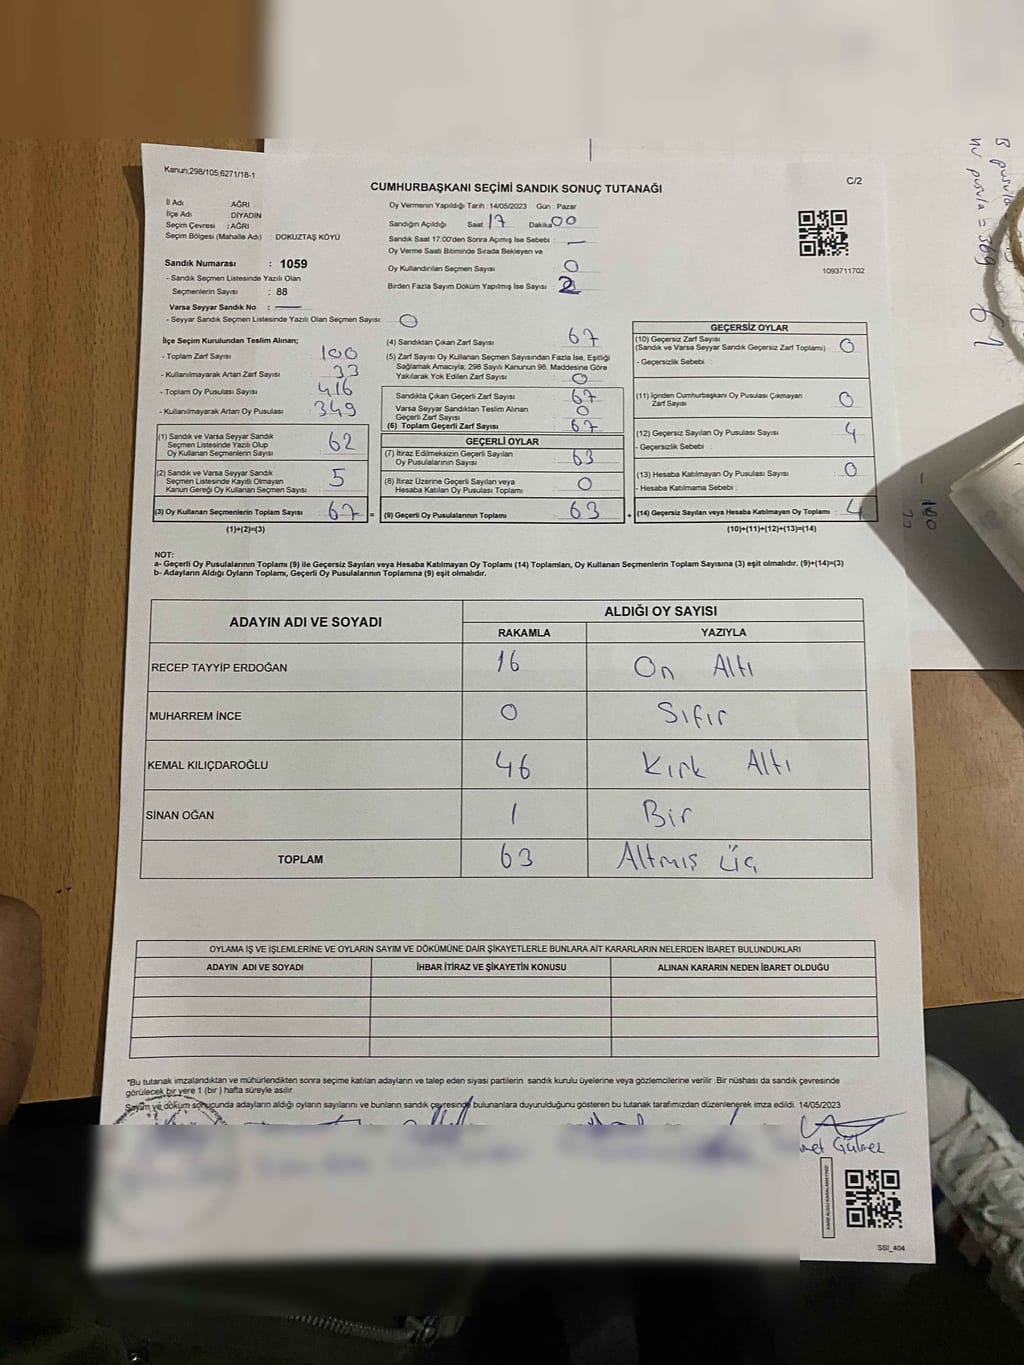 Kanun;298/105,6271/18-1
C/2
CUMHURBAŞKANI SEÇİMİ SANDIK SONUÇ TUTANAĞI
İl Adı : AĞRI
İlçe Adı : DİYADİN
Seçim Çevresi : AĞRI
Seçim Bölgesi (Mahalle Adı) DOKUZTAŞ KÖYÜ
Sandık Numarası : 1059
- Sandık Seçmen Listesinde Yazılı Olan
Seçmenlerin Sayısı : 88
Varsa Seyyar Sandık No : —
- Seyyar Sandık Seçmen Listesinde Yazılı Olan Seçmen Sayısı: 0
Oy Vermenin Yapıldığı Tarih : 14/05/2023 Gün : Pazar
Sandığın Açıldığı Saat 17 Dakika 00
Sandık Saat 17:00'den Sonra Açımış İse Sebebi : —
Oy Verme Saati Bitiminde Sırada Bekleyen ve
Oy Kullandırılan Seçmen Sayısı 0
Birden Fazla Sayım Döküm Yapılmış İse Sayısı : 2
1093711702
İlçe Seçim Kurulundan Teslim Alınan;
- Toplam Zarf Sayısı 100
- Kullanılmayarak Artan Zarf Sayısı 33
- Toplam Oy Pusulası Sayısı 416
- Kullanılmayarak Artan Oy Pusulası 349
(1) Sandık ve Varsa Seyyar Sandık
Seçmen Listesinde Yazılı Olup
Oy Kullanan Seçmenlerin Sayısı 62
(2) Sandık ve Varsa Seyyar Sandık
Seçmen Listesinde Kayıtlı Olmayan
Kanun Gereği Oy Kullanan Seçmen Sayısı 5
(3) Oy Kullanan Seçmenlerin Toplam Sayısı 67 =
(1)+(2)=(3)
(4) Sandıktan Çıkan Zarf Sayısı 67
(5) Zarf Sayısı Oy Kullanan Seçmen Sayısından Fazla İse, Eşitliği
Sağlamak Amacıyla; 298 Sayılı Kanunun 98. Maddesine Göre
Yakılarak Yok Edilen Zarf Sayısı 0
Sandıkta Çıkan Geçerli Zarf Sayısı 67
Varsa Seyyar Sandıktan Teslim Alınan
Geçerli Zarf Sayısı 0
(6) Toplam Geçerli Zarf Sayısı 67
GEÇERLİ OYLAR
(7) İtiraz Edilmeksizin Geçerli Sayılan
Oy Pusulalarının Sayısı 63
(8) İtiraz Üzerine Geçerli Sayılan veya
Hesaba Katılan Oy Pusulası Toplamı 0
(9) Geçerli Oy Pusulalarının Toplamı 63 +
GEÇERSİZ OYLAR
(10) Geçersiz Zarf Sayısı
(Sandık ve Varsa Seyyar Sandık Geçersiz Zarf Toplamı) 0
- Geçersizlik Sebebi
(11) İçinden Cumhurbaşkanı Oy Pusulası Çıkmayan
Zarf Sayısı 0
(12) Geçersiz Sayılan Oy Pusulası Sayısı 4
- Geçersizlik Sebebi :
(13) Hesaba Katılmayan Oy Pusulası Sayısı 0
- Hesaba Katılmama Sebebi :
(14) Geçersiz Sayılan veya Hesaba Katılmayan Oy Toplamı 4
(10)+(11)+(12)+(13)=(14)
NOT:
a- Geçerli Oy Pusulalarının Toplamı (9) ile Geçersiz Sayılan veya Hesaba Katılmayan Oy Toplamı (14) Toplamları, Oy Kullanan Seçmenlerin Toplam Sayısına (3) eşit olmalıdır. (9)+(14)=(3)
b- Adayların Aldığı Oyların Toplamı, Geçerli Oy Pusulalarının Toplamına (9) eşit olmalıdır.
ADAYIN ADI VE SOYADI
ALDIĞI OY SAYISI
RAKAMLA YAZIYLA
RECEP TAYYİP ERDOĞAN 16 On Altı
MUHARREM İNCE 0 Sıfır
KEMAL KILIÇDAROĞLU 46 Kırk Altı
SİNAN OĞAN 1 Bir
TOPLAM 63 Altmış üç
OYLAMA İŞ VE İŞLEMLERİNE VE OYLARIN SAYIM VE DÖKÜMÜNE DAİR ŞİKAYETLERLE BUNLARA AİT KARARLARIN NELERDEN İBARET BULUNDUKLARI
ADAYIN ADI VE SOYADI İHBAR İTİRAZ VE ŞİKAYETİN KONUSU ALINAN KARARIN NEDEN İBARET OLDUĞU
*Bu tutanak imzalandıktan ve mühürlendikten sonra seçime katılan adayların ve talep eden siyasi partilerin sandık kurulu üyelerine veya gözlemcilerine verilir .Bir nüshası da sandık çevresinde
görülecek bir yere 1 (bir ) hafta süreyle asılır
Sayım ve döküm sonucunda adayların aldığı oyların sayılarını ve bunların sandık çevresinde bulunanlara duyurulduğunu gösteren bu tutanak tarafımızdan düzenlenerek imza edildi. 14/05/2023
Gülmez
SSI_404